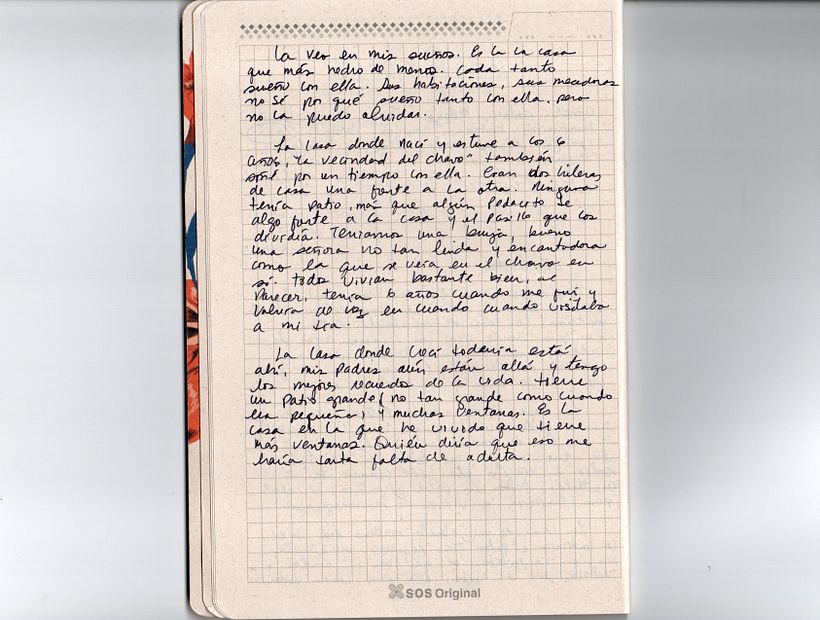 La veo en mis sueños. Es la la casa
que más hecho de menos. Cada tanto
sueño con ella. Sus habitaciones, sus mecedoras
no sé por qué sueño tanto con ella, pero
no la puedo olvidar.
La casa donde nací y estuve a los 6
años, "la vecindad del chavo" también
soñé por un tiempo con ella. Eran dos hileras
de casa una frente a la otra. Ninguna
tenía patio, más que algún pedacito de
algo frente a la casa y el pasillo que los
dividía. Teníamos una bruja, bueno
una señora no tan linda y encantadora
como la que se veía en el chavo en
sí. Todos vivían bastante bien, al
parecer, tenía 6 años cuando me fui y
volvía de vez en cuando cuando visitaba
a mi tía.
La casa donde crecí todavía está
ahí, mis padres aún están allá y tengo
los mejores recuerdos de la vida. Tiene
un patio grande (no tan grande como cuando
era pequeña) y muchas ventanas. Es la
casa en la que he vivido que tiene
más ventanas. Quién diría que eso me
haría tanta falta de adulta.
SOS Original